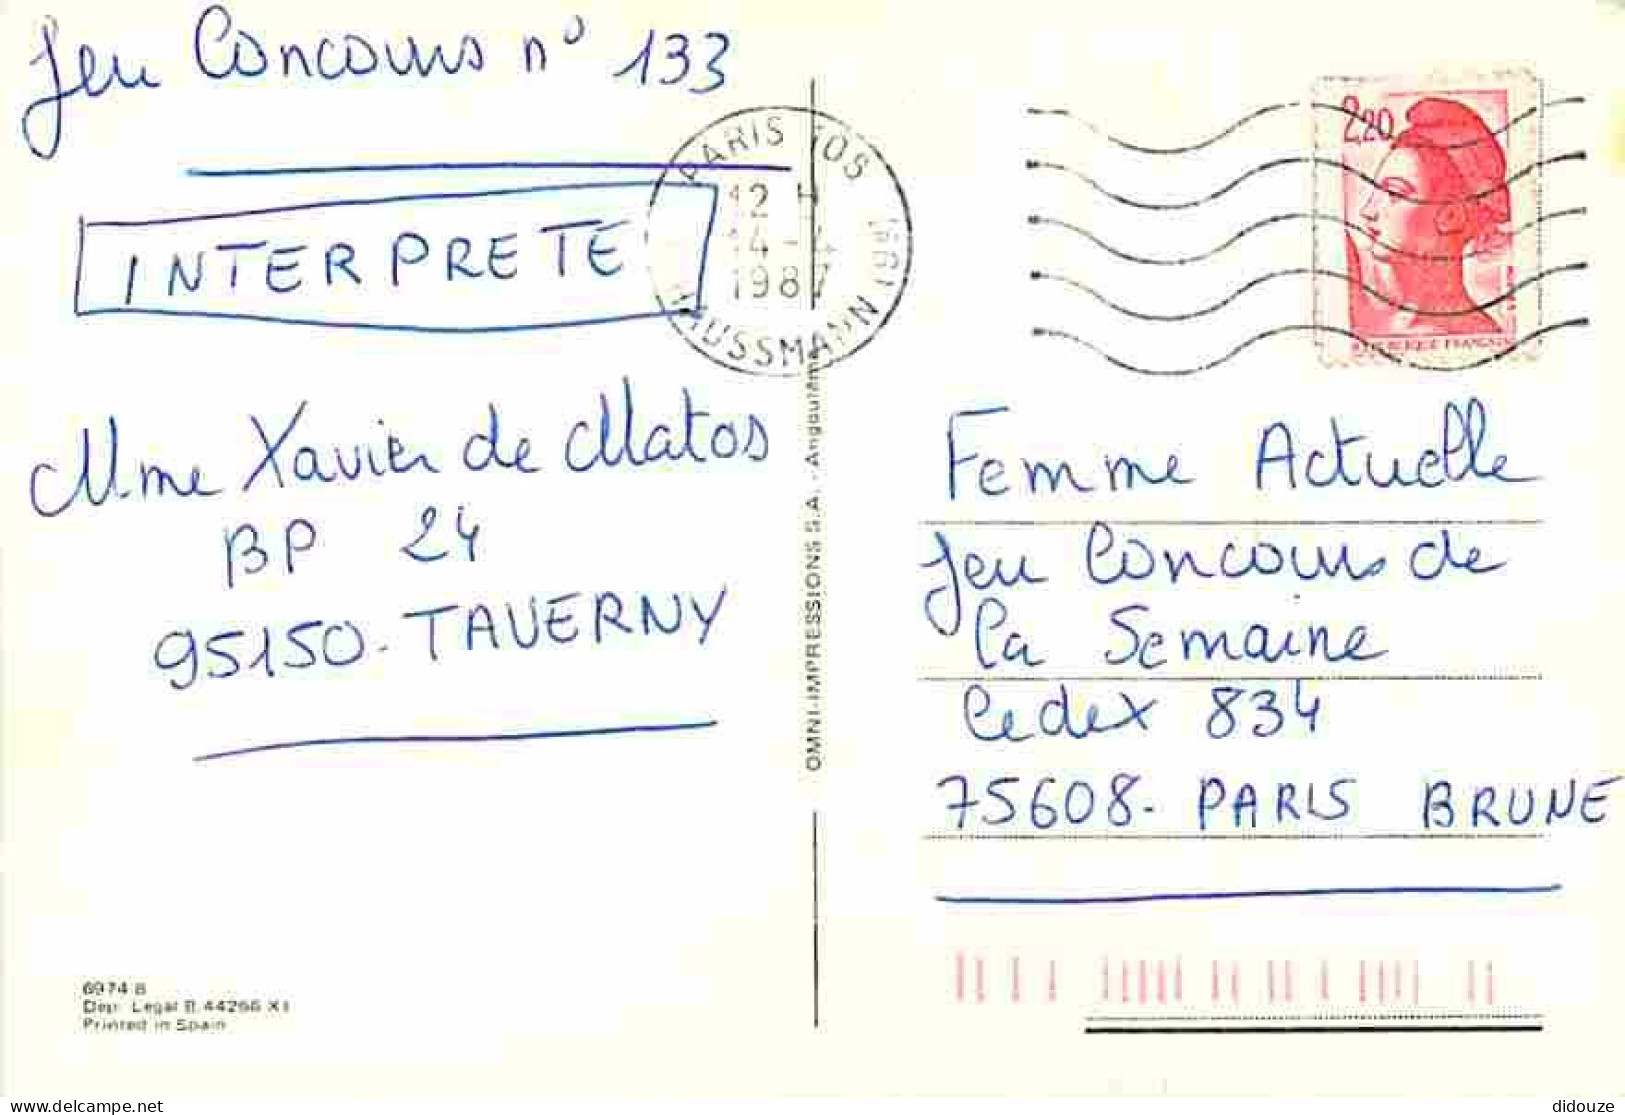 Jeu Concours n° 133
INTERPRETE
Mme Xavier de Matos
BP 24
95150 - TAVERNY
6974 B
Dep. Legal B. 44266 XI
Printed in Spain
OMNI-IMPRESSIONS S.A. - Angoulême
PARIS 108
12 H
14 - 4
1987
HAUSSMANN
2,20
REPUBLIQUE FRANÇAISE
Femme Actuelle
Jeu Concours de
la Semaine
Cedex 834
75608 - PARIS BRUNE
delcampe.net
didouze